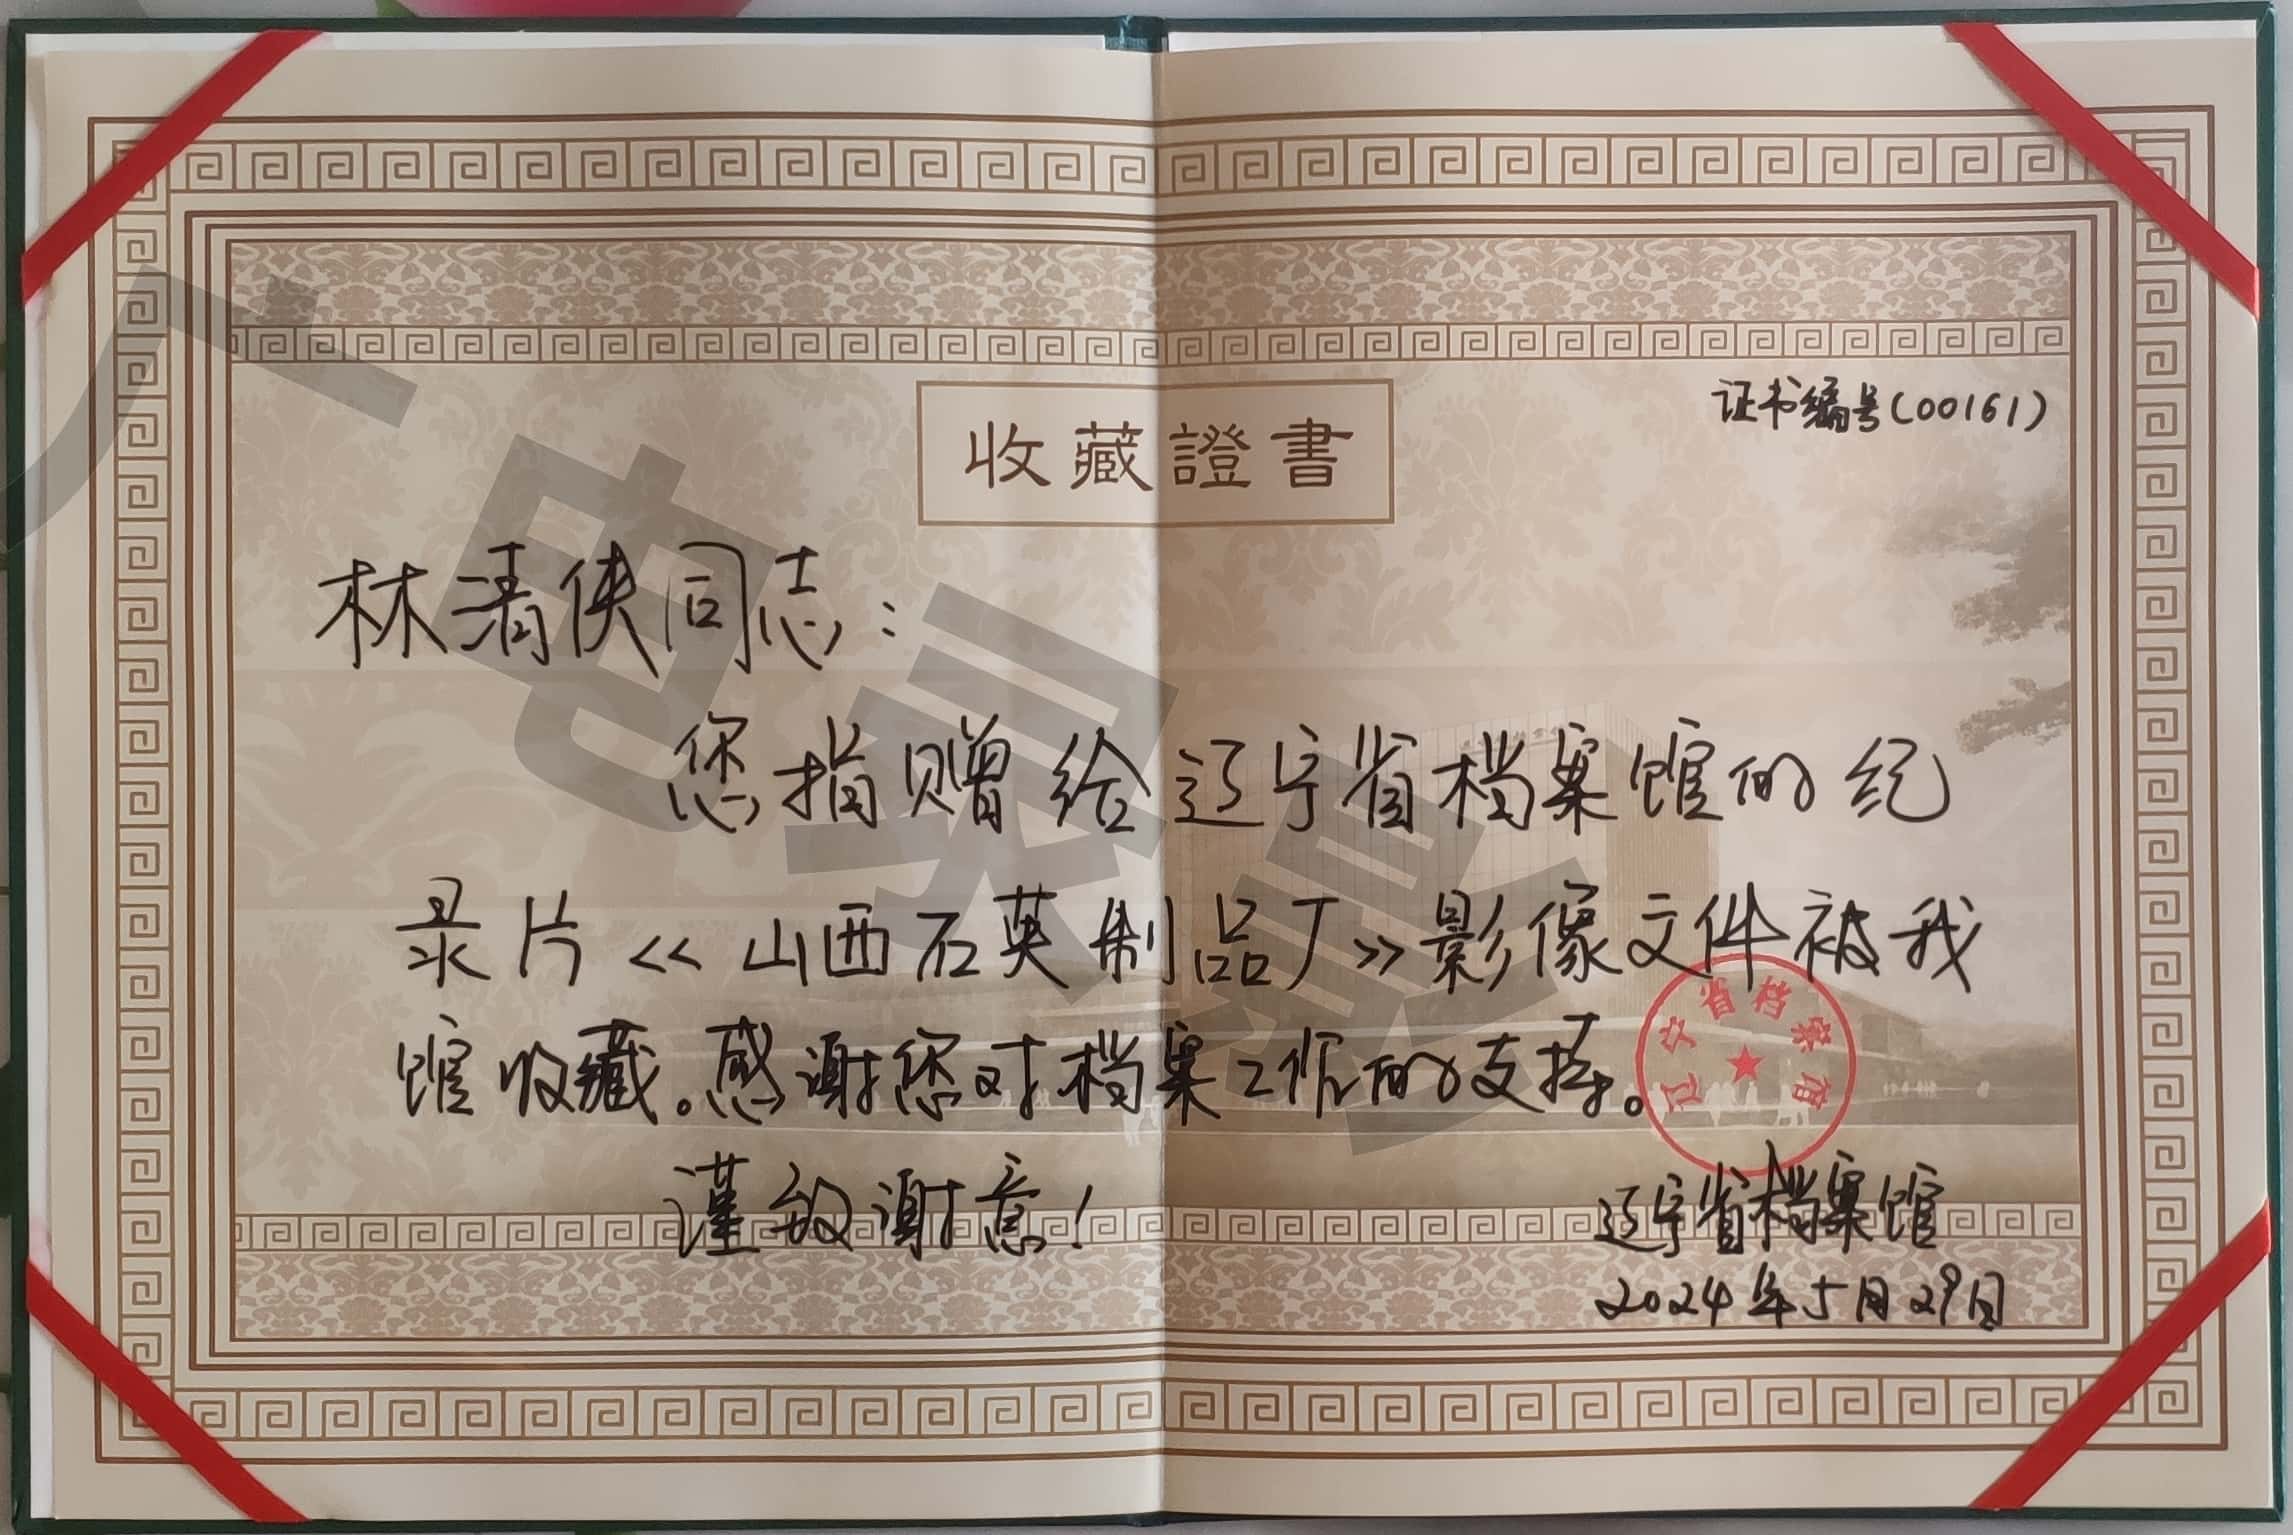 收藏證書
证书编号(00161)
林清侠同志:
您捐赠给辽宁省档案馆的纪
录片《山西石英制品厂》影像文件被我
馆收藏。感谢您对档案工作的支持。
谨致谢意!
辽宁省档案馆
辽宁省档案馆
2024年5月29日